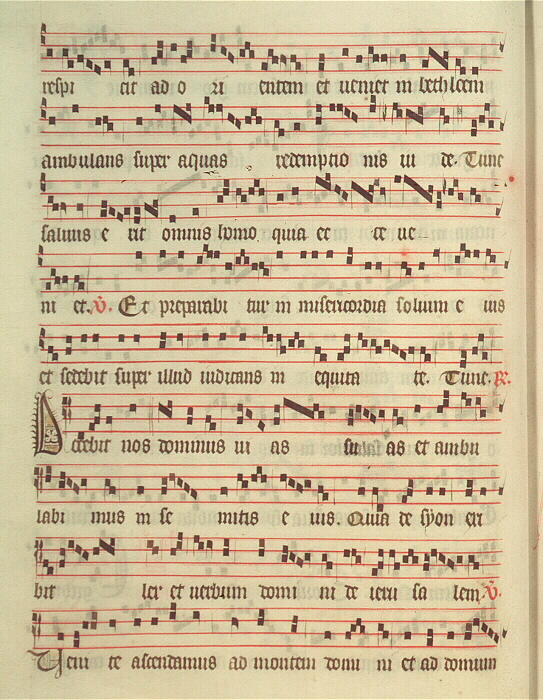 respi cit ad o ri entem et ueniet in bethleem
ambulans super aquas redemptio nis iu de. Tunc
saluus e rit omnis homo quia ec ce ue
ni et. V. Et preparabi tur in misericordia solium e ius
et sedebit super illud iudicans in equita te. Tunc. R.
Docebit nos dominus ui as suas as et ambu
labi mus in se mitis e ius. Quia de syon exi
bit lex et uerbum domi ni de ieru sa lem. V.
Veni te ascendamus ad montem domi ni et ad domum